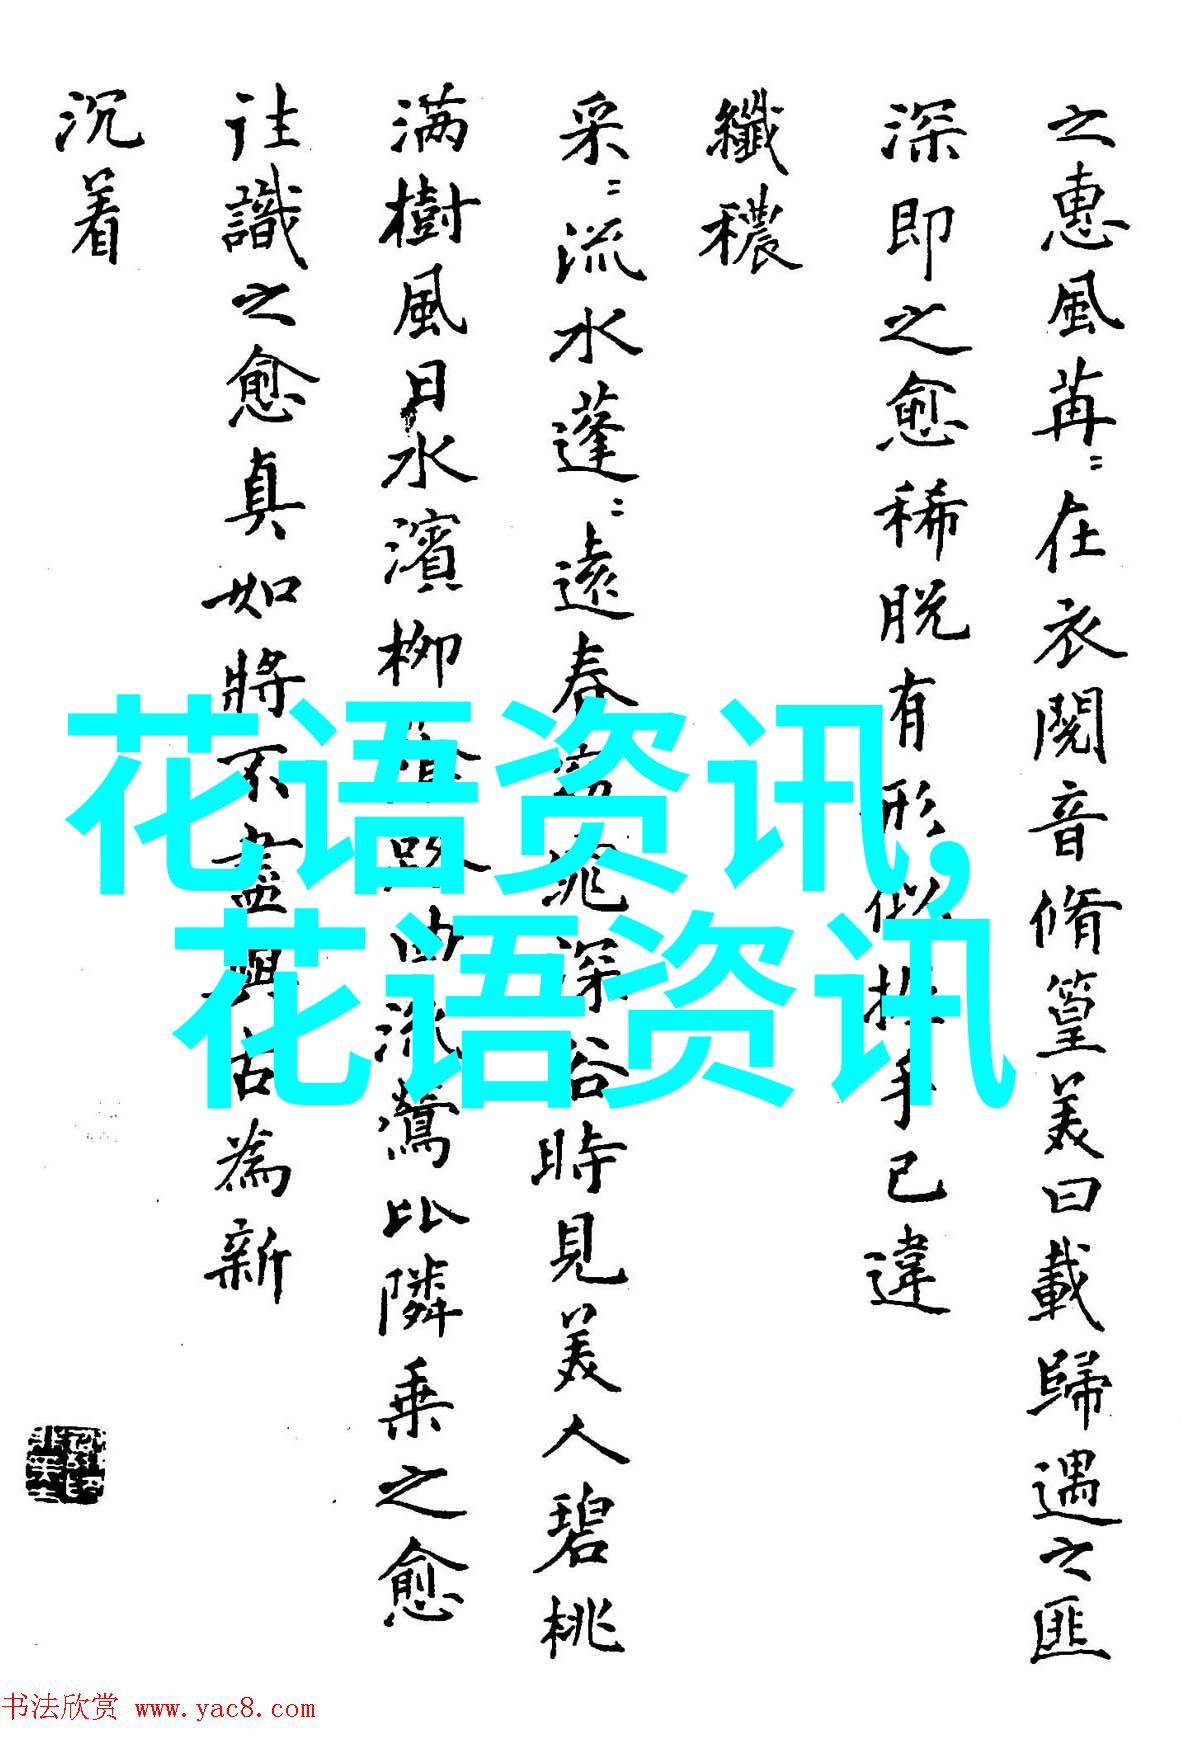 之惠風苒〻在衣閱音脩篁美曰載歸遇之匪
深即之愈稀脫有形似握手已違
纖穠
采〻流水蓬〻遠春窈窕深谷時見美人碧桃
满樹風日水濱柳陰路曲流鶯比隣乗之愈
往識之愈真如將不盡與古為新
沉着
花语资讯,
花语资讯
书法欣赏 www.yac8.com